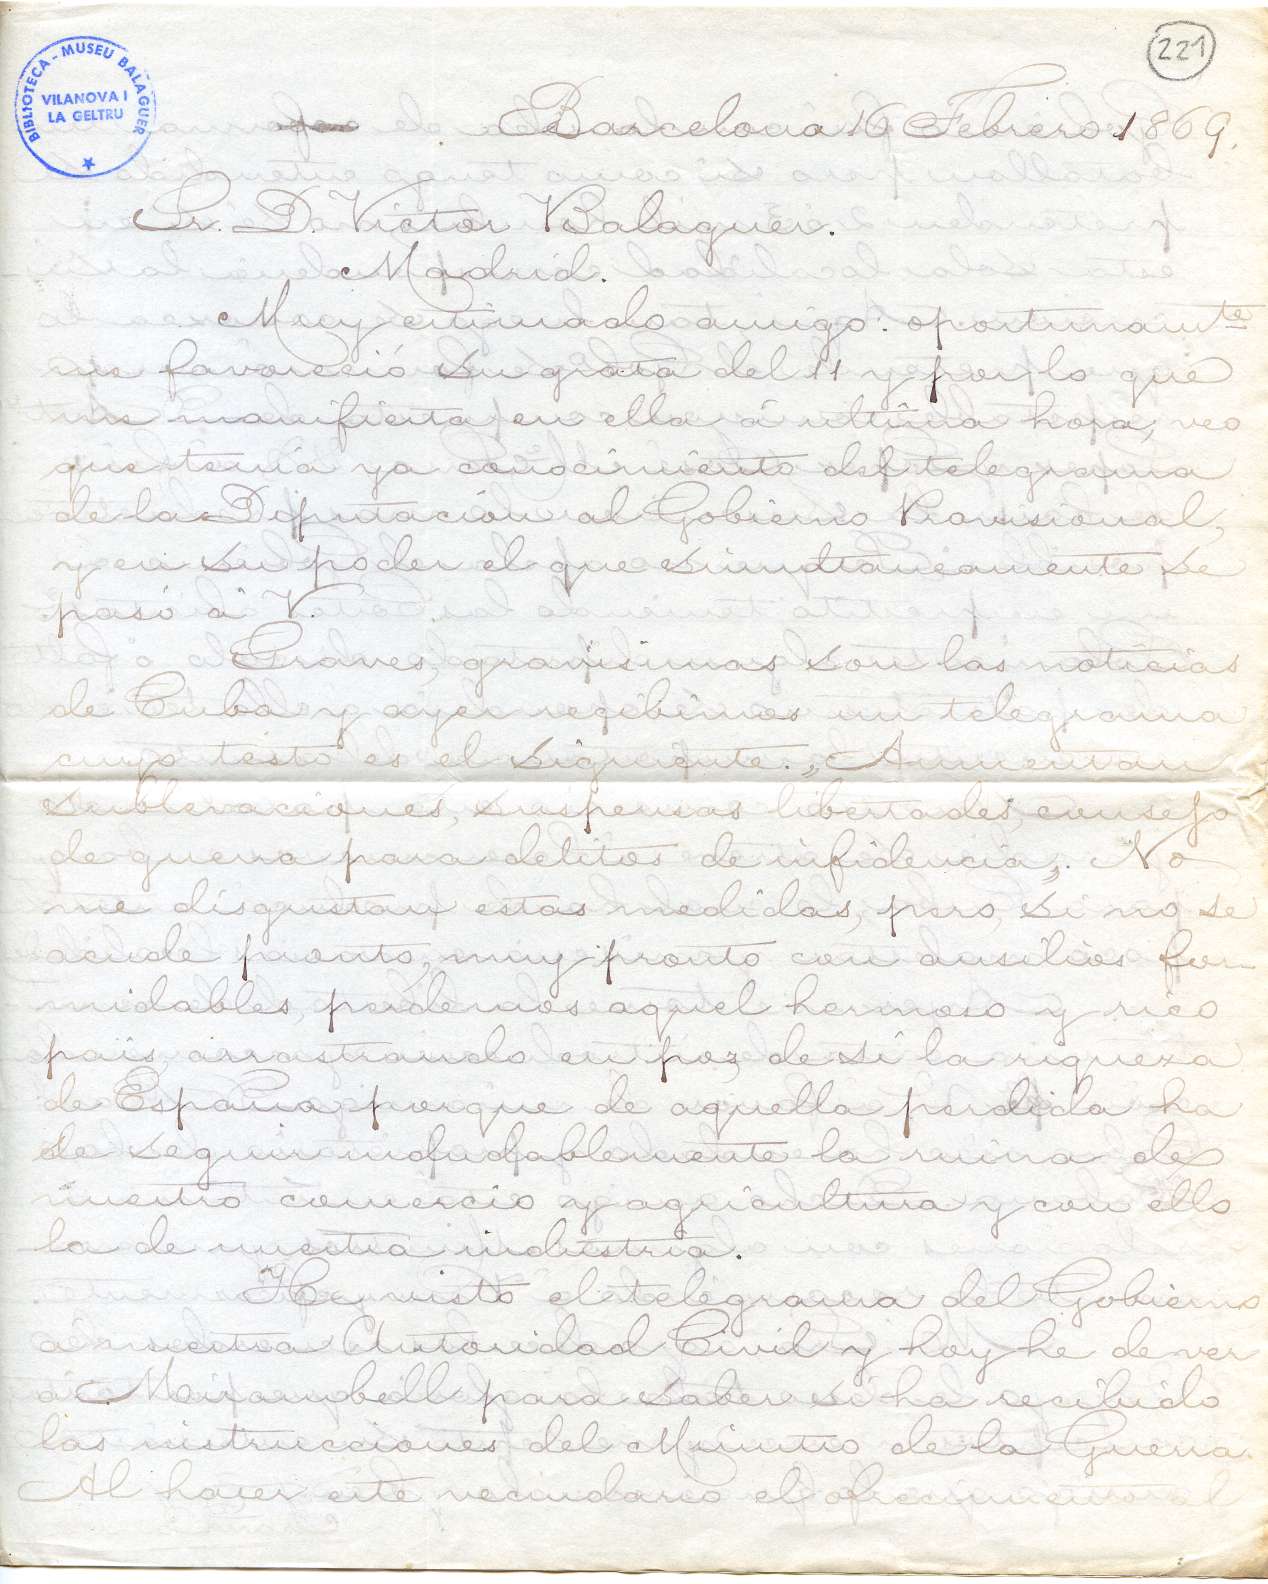 221
BIBLIOTECA - MUSEU BALAGUER
VILANOVA I
LA GELTRU
Barcelona 16 Febrero 1869.
Sr. D. Victor Balaguer.
Madrid.
Muy estimado amigo: oportunamte
me favoreció su grata del 11 y por lo que
me manifiesta en ella á ultima hora, veo
que tenia ya conocimiento del telegrama
de la Diputacion al Gobierno Provisional,
y en su poder el que simultaneamente se
pasó á V.
Graves, gravisimas son las noticias
de Cuba y ayer recibimos un telegrama
cuyo testo es el siguiente. „Aumentan
sublevaciones, suspensas libertades, consejo
de guerra para delitos de infidencia„. No
me disgustan estas medidas, pero, si no se
acude pronto, muy pronto con ausilios for-
midables, perdemos aquel hermoso y rico
pais, arrastrando en poz de sí la riqueza
de España porque de aquella perdida ha
de seguir indudablemente la ruina de
nuestro comercio y agricultura y con ello
la de nuestra industria.
He visto el telegrama del Gobierno
á nuestra Autoridad Civil y hoy he de ver
á Mirambell para saber si ha recibido
las instrucciones del Ministro de la Guerra.
Al hacer este vecindario el ofrecimiento al